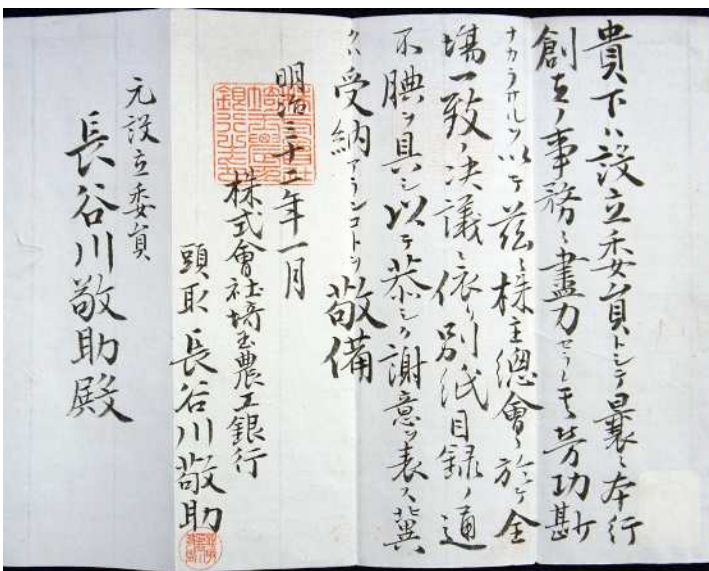 貴下ハ設立委員トシテ曩ニ本行
創立ノ事務ニ盡力セラレ其労功尠
ナカラサルヲ以テ茲ニ株主總會ニ於テ全
場一致ノ決議ニ依リ別紙目録ノ通
不腆ヲ具シ以テ恭シク謝意ヲ表ス冀
クハ受納アランコトヲ敬備
明治三十二年一月
株式會社埼玉農工銀行
頭取長谷川敬助
元設立委員
長谷川敬助殿